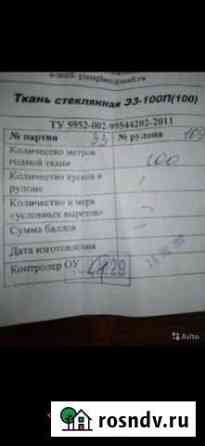 Ткань стеклянная ЭЗ-100П(100)
ТУ 5952-002-99544202-2011
№ партии 33 № рулона
Количество метров
годной ткани 100
Количество кусков в
рулоне
Количество в мера
«условных вырезов»
Сумма баллов
Дата изготовления
Контролер ОУ
Avito
rosndv.ru